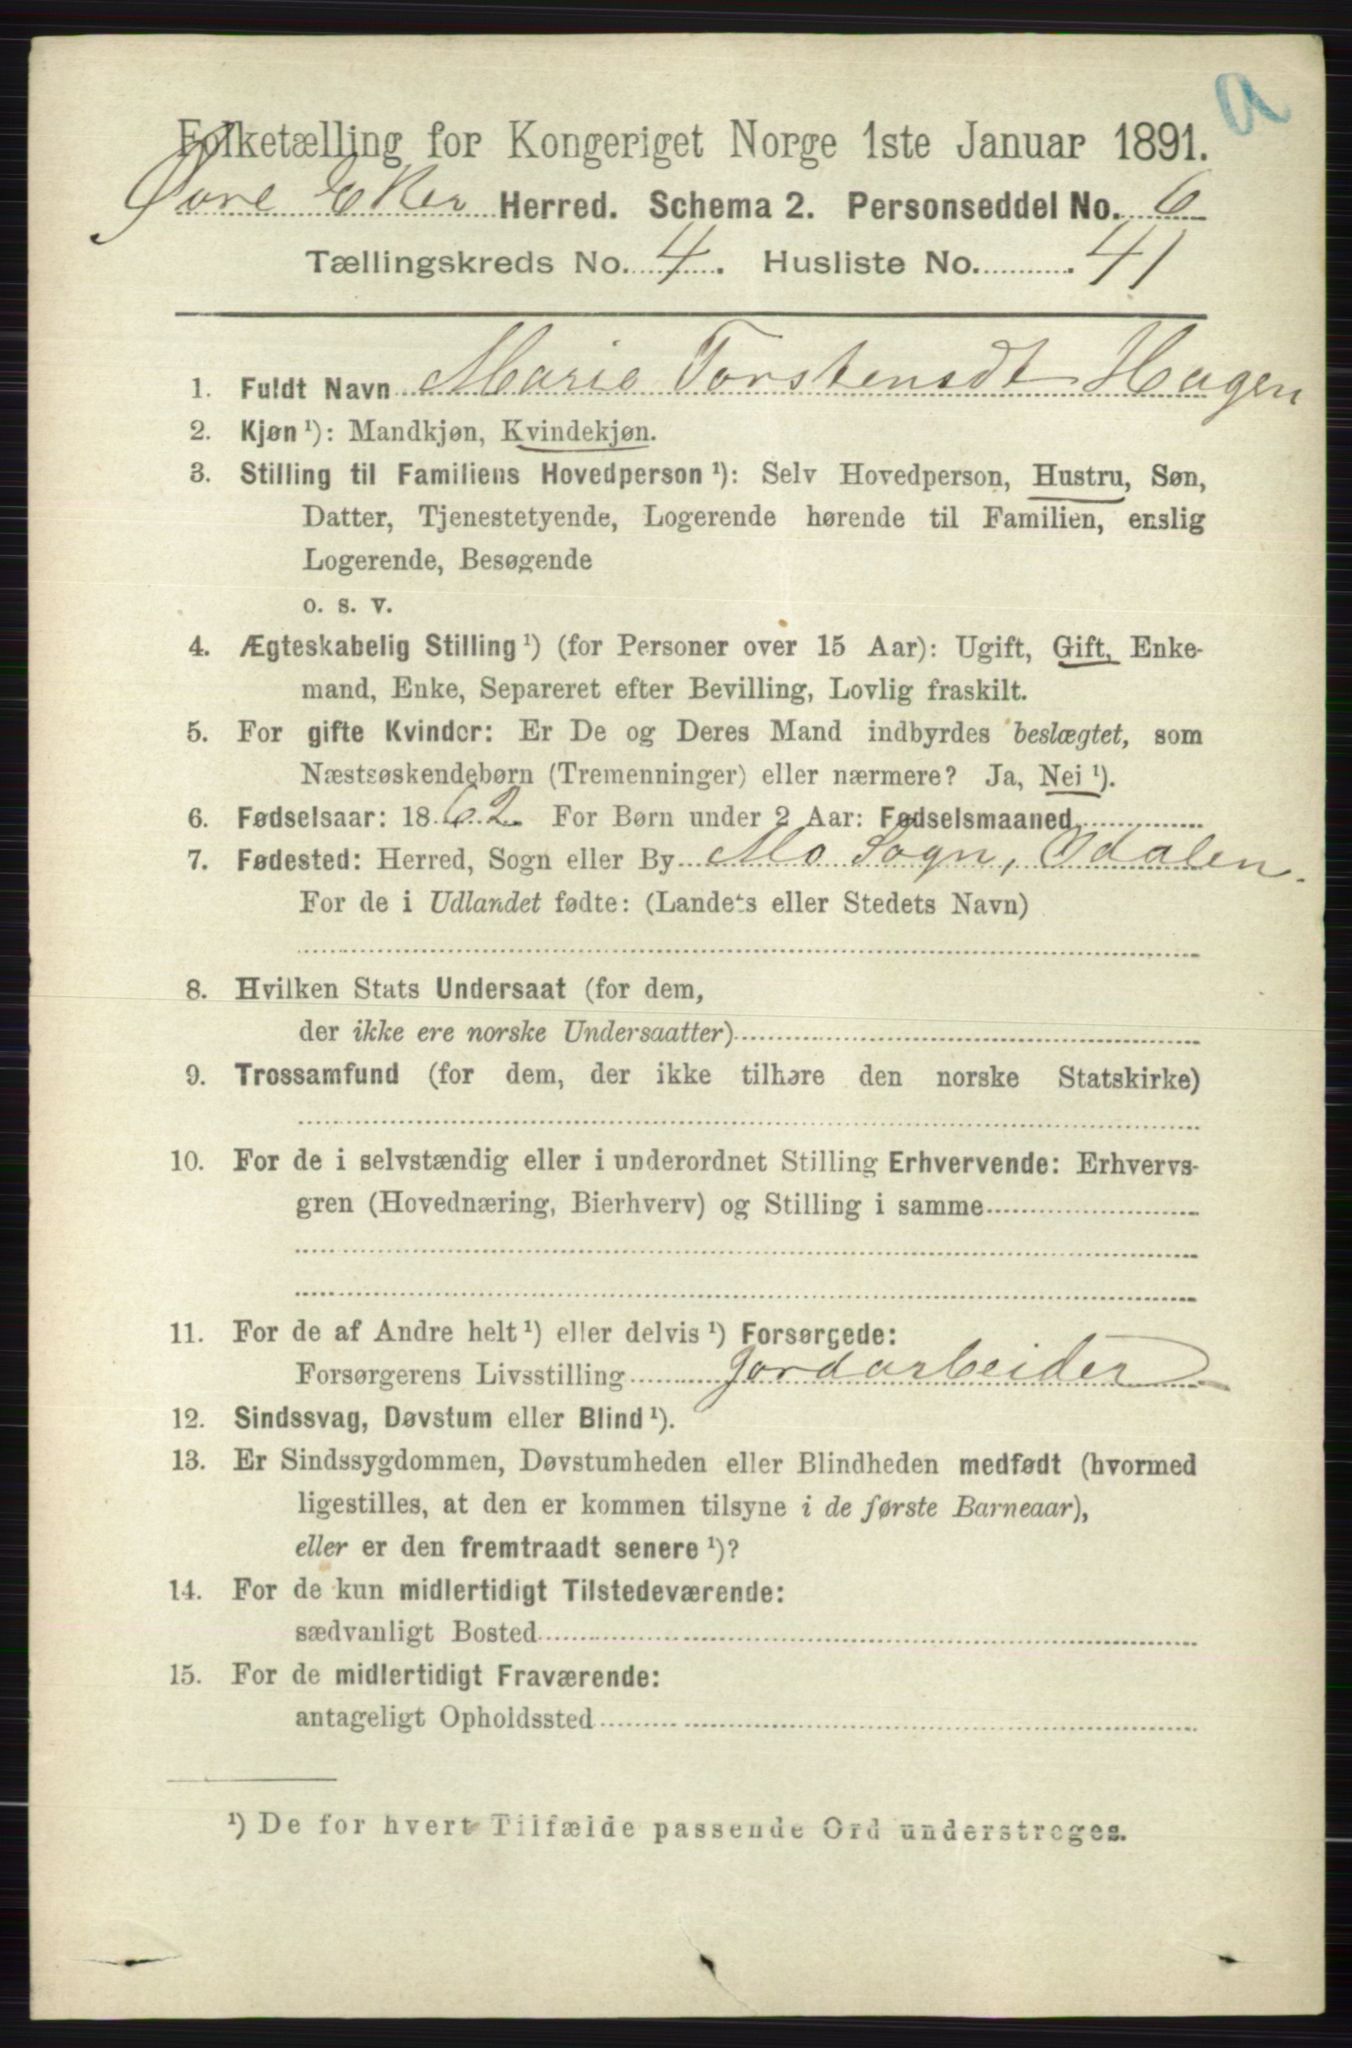 a
Folketælling for Kongeriget Norge 1ste Januar 1891.
Øvre Eker Herred. Schema 2. Personseddel No. 6
Tællingskreds No. 4. Husliste No. 41
1. Fuldt Navn Marie Torstensdt Hagen
2. Kjøn ¹): Mandkjøn, Kvindekjøn.
3. Stilling til Familiens Hovedperson ¹): Selv Hovedperson, Hustru, Søn,
Datter, Tjenestetyende, Logerende hørende til Familien, enslig
Logerende, Besøgende
o. s. v.
4. Ægteskabelig Stilling ¹) (for Personer over 15 Aar): Ugift, Gift, Enke-
mand, Enke, Separeret efter Bevilling, Lovlig fraskilt.
5. For gifte Kvinder: Er De og Deres Mand indbyrdes beslægtet, som
Næstsøskendebørn (Tremenninger) eller nærmere? Ja, Nei ¹).
6. Fødselsaar: 1862 For Børn under 2 Aar: Fødselsmaaned
7. Fødested: Herred, Sogn eller By Mo Sogn, Odalen.
For de i Udlandet fødte: (Landets eller Stedets Navn)
8. Hvilken Stats Undersaat (for dem,
der ikke ere norske Undersaatter)
9. Trossamfund (for dem, der ikke tilhøre den norske Statskirke)
10. For de i selvstændig eller i underordnet Stilling Erhvervende: Erhvervs-
gren (Hovednæring, Bierhverv) og Stilling i samme
11. For de af Andre helt ¹) eller delvis ¹) Forsørgede:
Forsørgerens Livsstilling Jordarbeider
12. Sindssvag, Døvstum eller Blind ¹).
13. Er Sindssygdommen, Døvstumheden eller Blindheden medfødt (hvormed
ligestilles, at den er kommen tilsyne i de første Barneaar),
eller er den fremtraadt senere ¹)?
14. For de kun midlertidigt Tilstedeværende:
sædvanligt Bosted
15. For de midlertidigt Fraværende:
antageligt Opholdssted
¹) De for hvert Tilfælde passende Ord understreges.